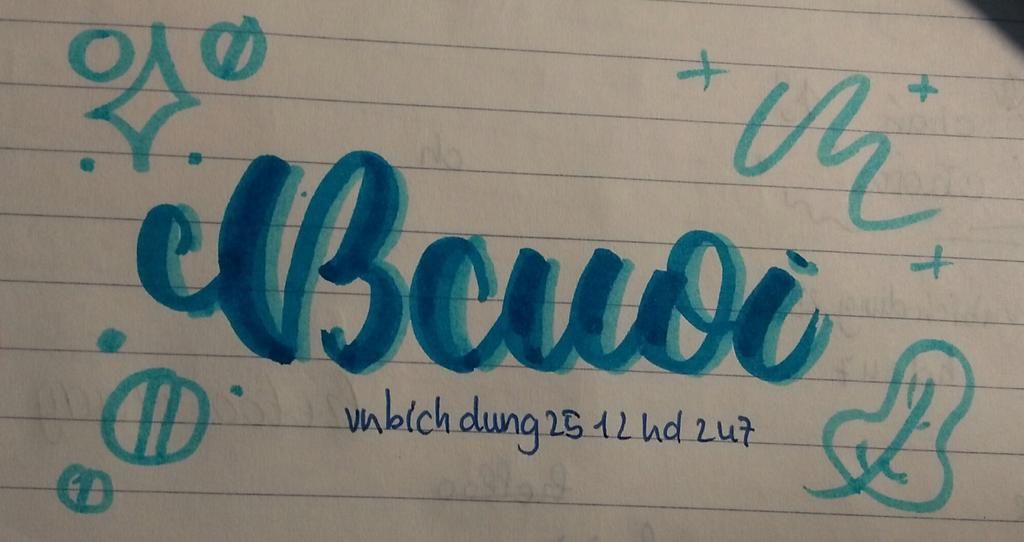 Bcuoi
vnbichdung2512hd247